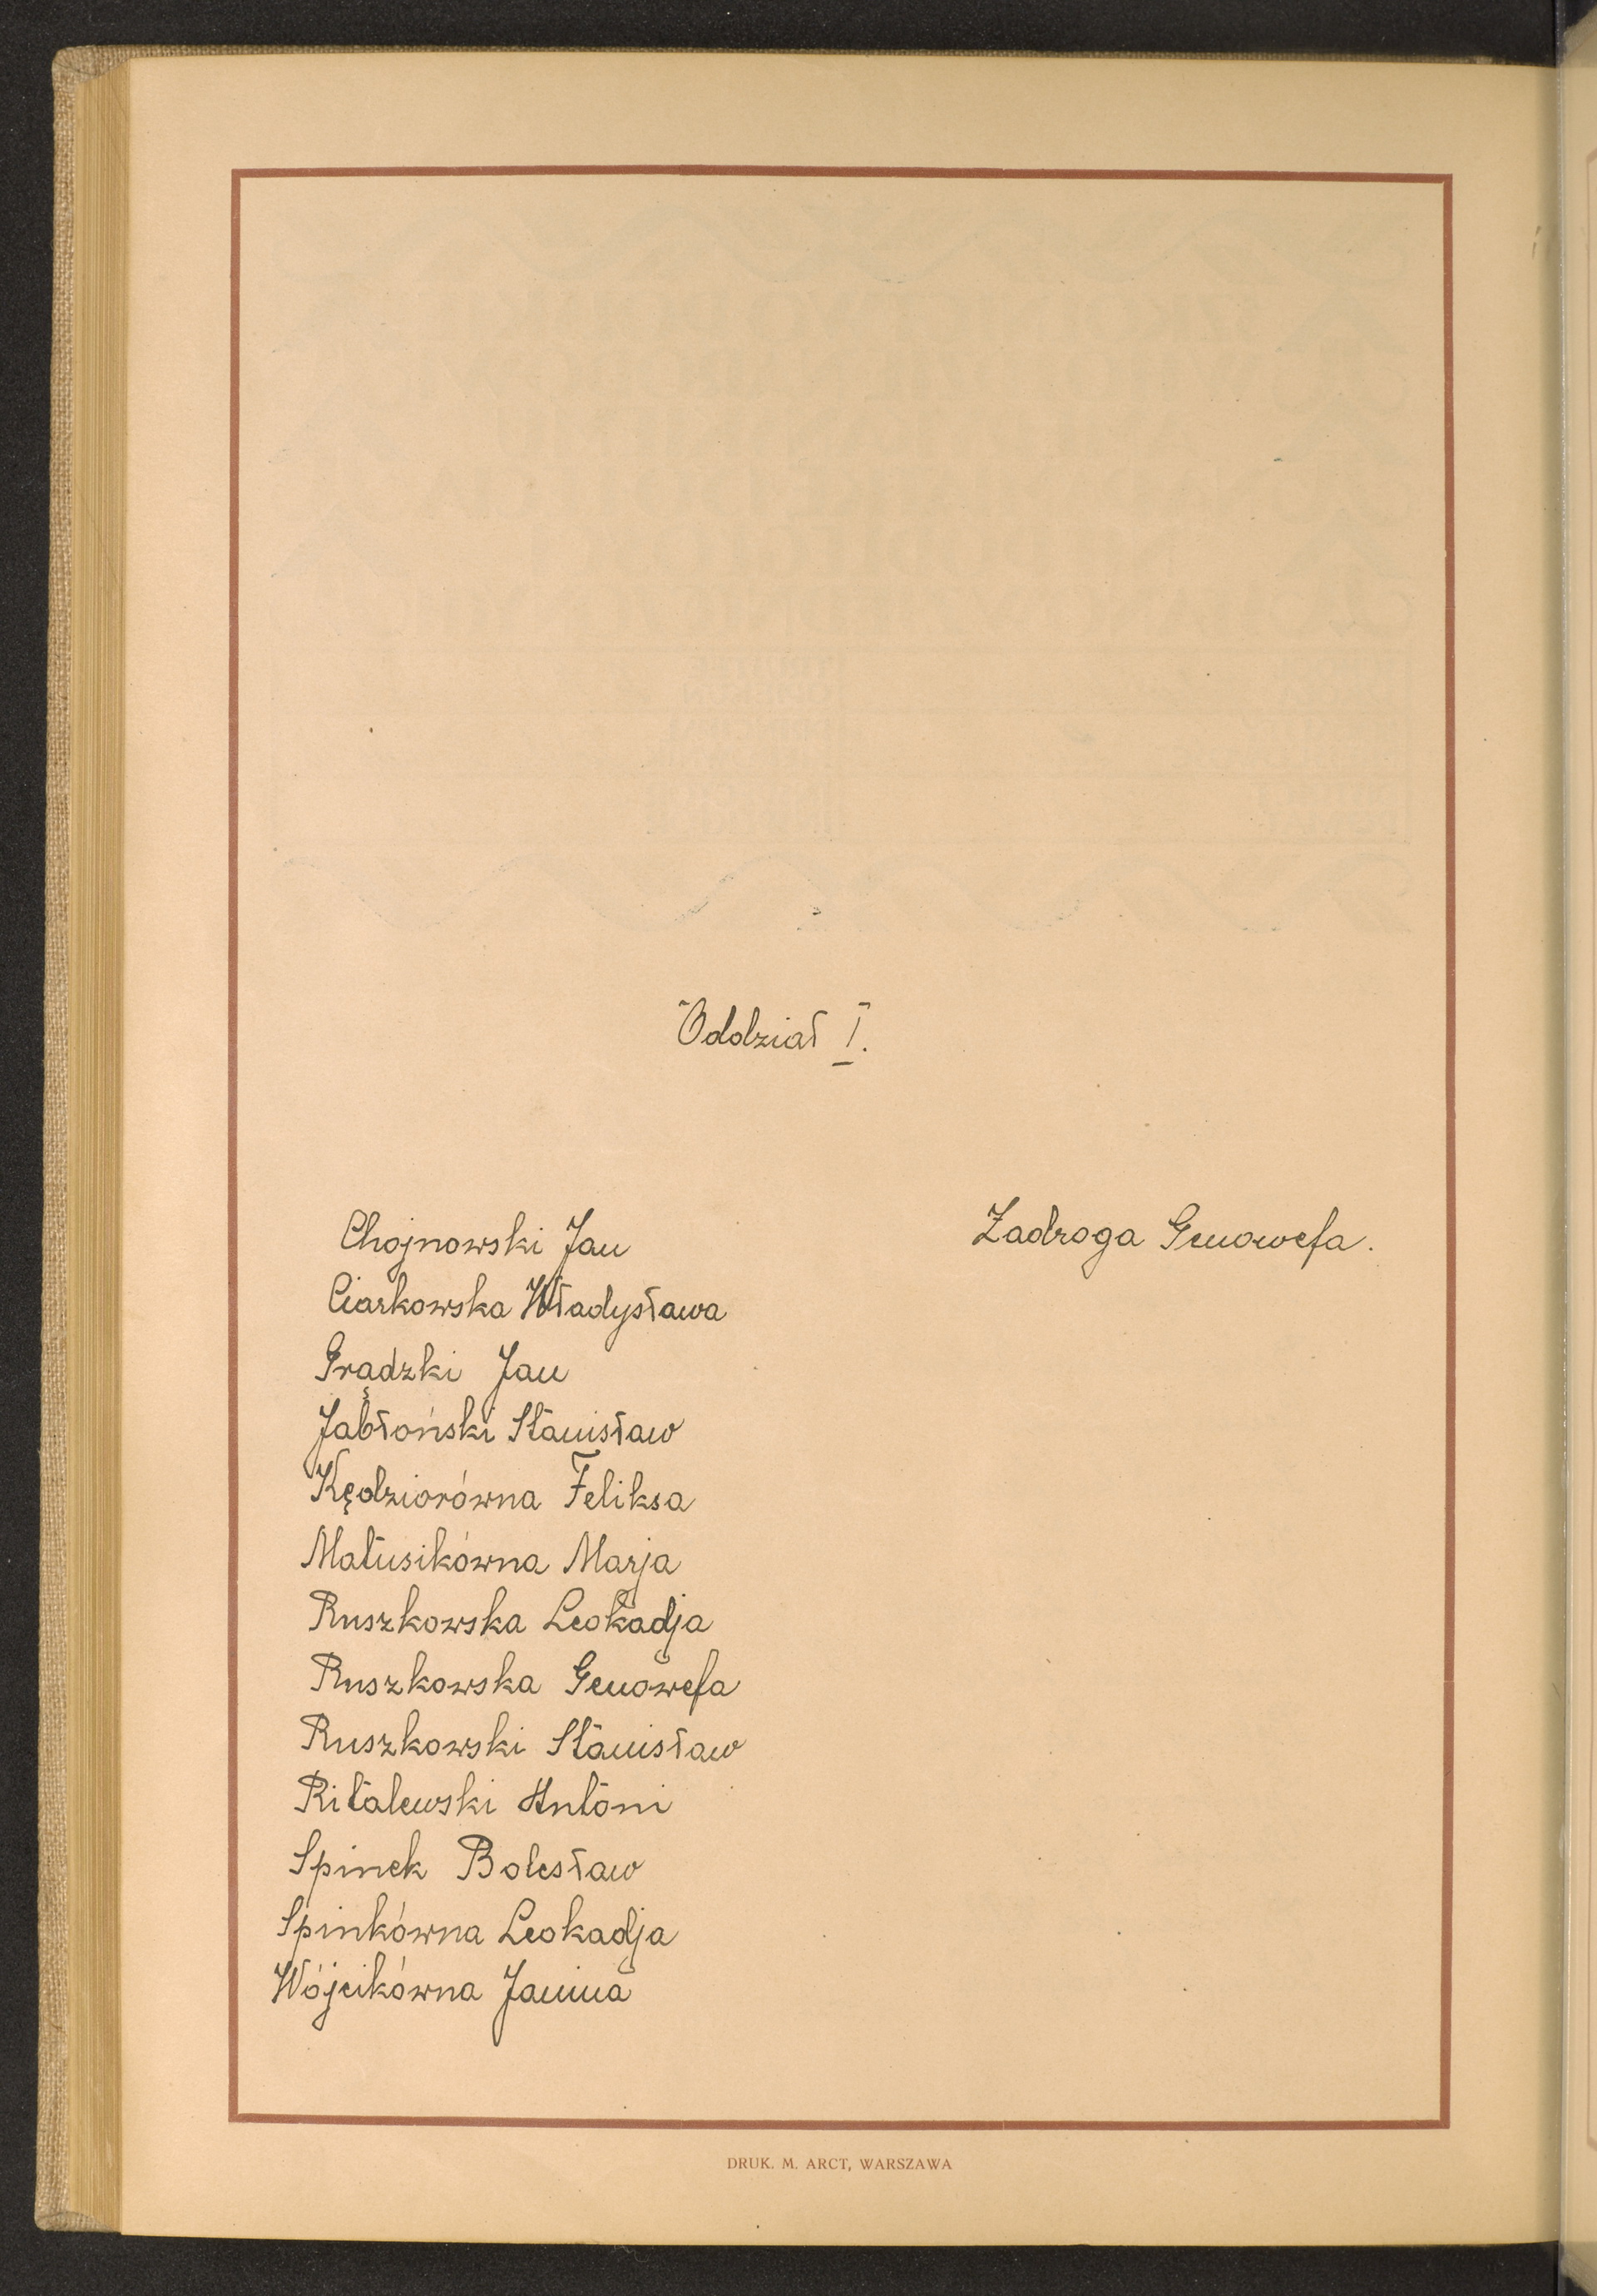 Oddział I.
Chojnowski Jan
Ciarkowska Władysława
Grądzki Jan
Jabłoński Stanisław
Kędziorówna Feliksa
Matusikówna Marja
Ruszkowska Leokadja
Ruszkowska Genowefa
Ruszkowski Stanisław
Ritalewski Antoni
Spinek Bolesław
Spinkówna Leokadja
Wójcikówna Janina
Zadroga Genowefa.
DRUK. M. ARCT, WARSZAWA